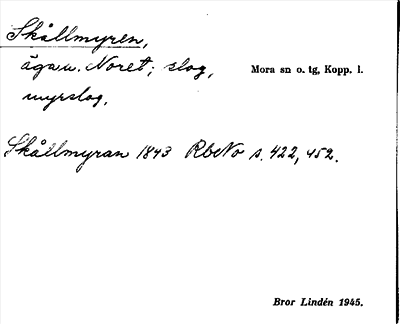 Skållmyren,
ägou. Noret; slog, Mora sn o. tg, Kopp. l.
myrslog.
Skållmyran 1843 RbNo s. 422, 452.
Bror Lindén 1945.